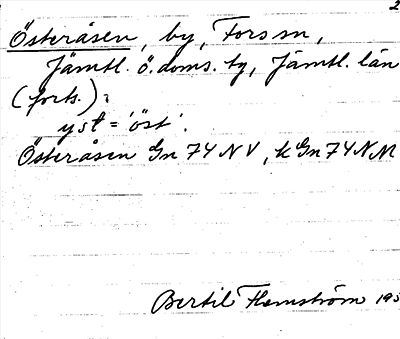 2
Österåsen, by, Fors sn,
Jämtl. ö. doms. tg, Jämtl. län
(forts.):
yst = 'öst'.
Österåsen Gn 74 NV, k Gn 74 NM
Bertil Flemström 195